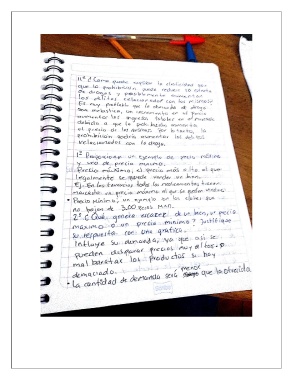 11º ¿Como puede explicar la elasticidad por
que la prohibición puede reducir la oferta
de drogas y posiblemente aumentar
los delitos relacionados con las mismas?
Es muy probable que la demanda de droga
sea inelástica, un incremento en el precio
aumentar los ingresos totales en el mercado
debido a que la
el precio de las mismas. Por lo tanto, la
prohibición podría aumentar los delitos
relacionados con la droga.
1º Proporcionar un ejemplo de precio mínimo
y uno de precio máximo.
Precio máximo, el precio más alto al que
legalmente se puede vender un bien.
Ej. En las farmacias todos los medicamentos tienen
marcado un precio máximo al que se pueden vender
• Precio mínimo, un ejemplo en los
no bajan de 3,00 MXN.
2º ¿Qué genera escasez de un bien, un precio
máximo o un precio mínimo? Justifique
su respuesta con una gráfica.
Intluye su demanda, ya que así se
pueden disparar precios muy altos o
mal baratar los productos si hay
demaciado.
• La cantidad de demanda será menor que la ofrecida